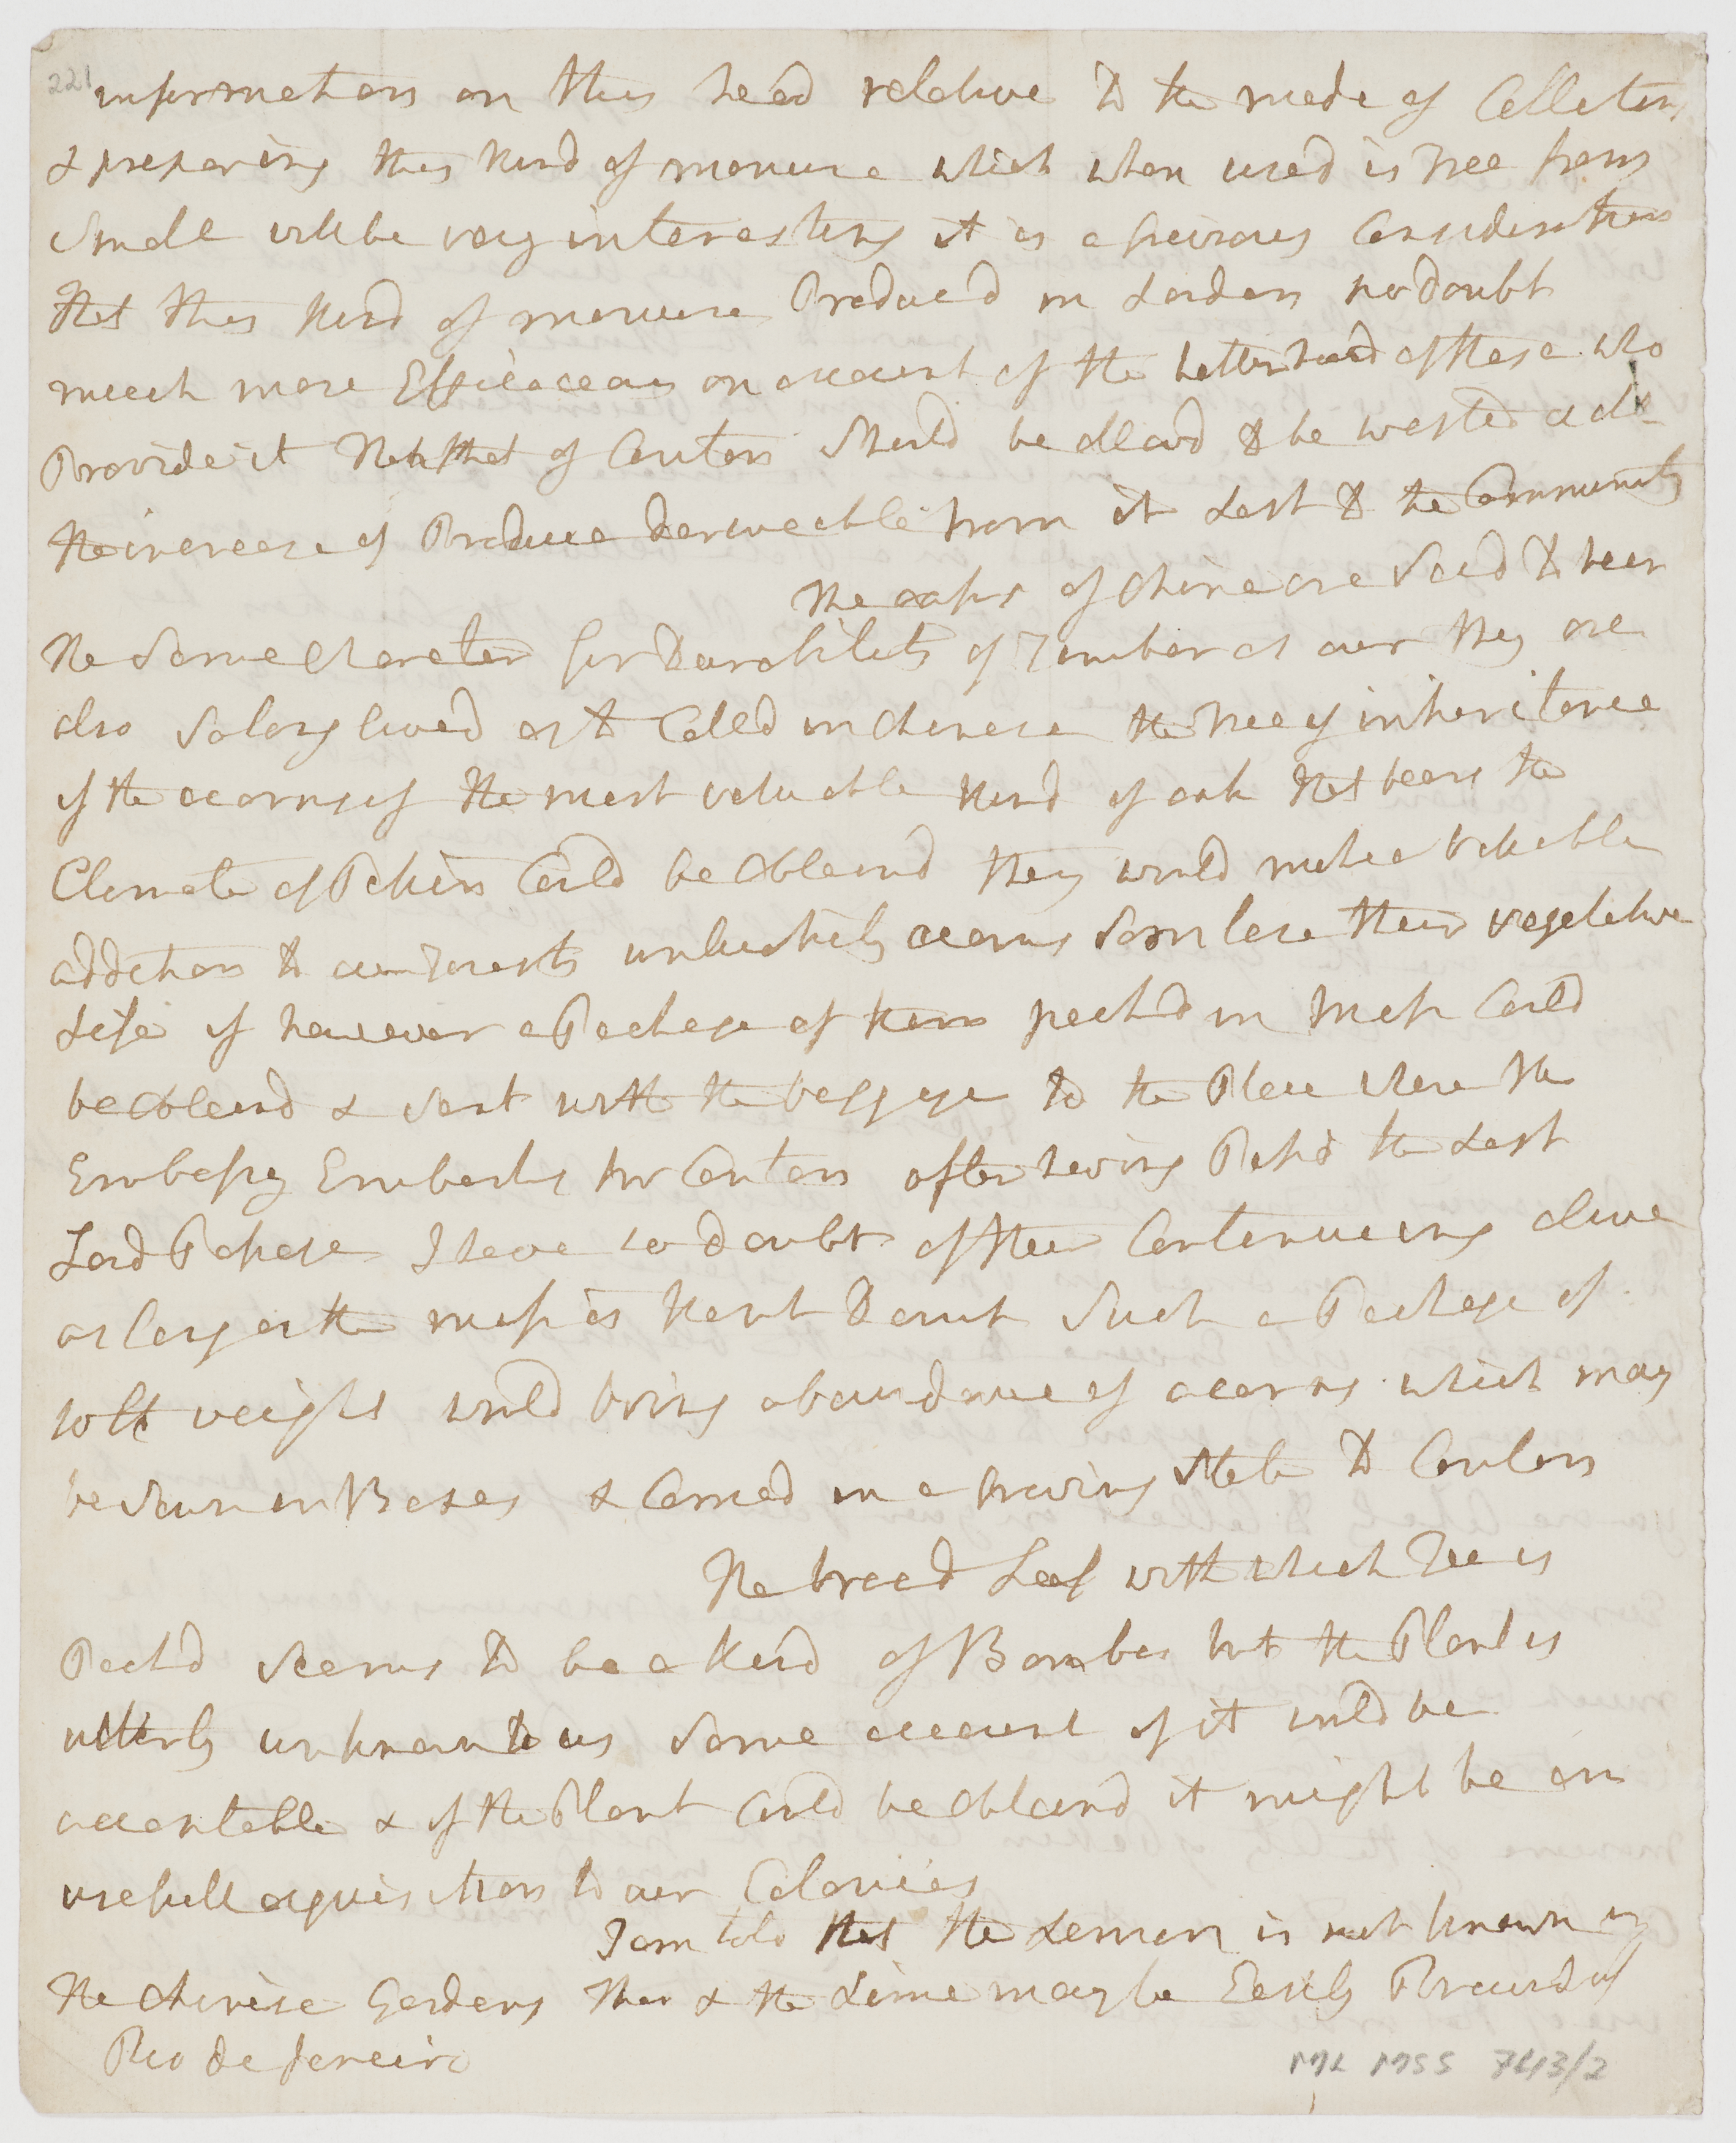 221 information on this head relative to the mode of Collecting
& preparing this kind of manure which when used is Free from
Smell will be very interesting it is a greivous Consideration
that this kind of manure Produced in London no doubt
much more Efficacious on account of the better food of those who
Provide it than that of Canton Should be allowd to be wasted & all
the increase of Produce deriveable from it Lost to the Community
The oaks of China are Said to bear
the Same Character for Durability of Timber as our they are
also So long lived as to Calld in Chinese the Tree of inheritance
if the acorns of the most valuable kind of oak that bears the
Climate of Pekin Could be Obtaind they would make a valuable
addition to our Forests unluckily acorns Soon lose their vegetative
Life if however a Package of them packd in Moss Could
be Obtaind & Sent with the baggage to the Place where the
Embassy Embarks for Canton after having Passd the Last
Land Passage I have no doubt of their Continueing alive
as long as the moss is kept Damp Such a Package of
10 lb weight would bring abundance of acorns which may
be Sown in Boxes & Carried in a growing State to Canton
The broad Leaf with which Tea is
Packd Seems to be a kind of Bambu but the Plant is
utterly unknown to us Some account of it would be
acceptable & if the Plant Could be obtaind it might be an
usefull acquisition to our Colonies
I am told that the Lemon is not known in
the Chinese Gardens this & the Lime may be Easily Procurd at
Rio de Janeiro
ML MSS 7413/2